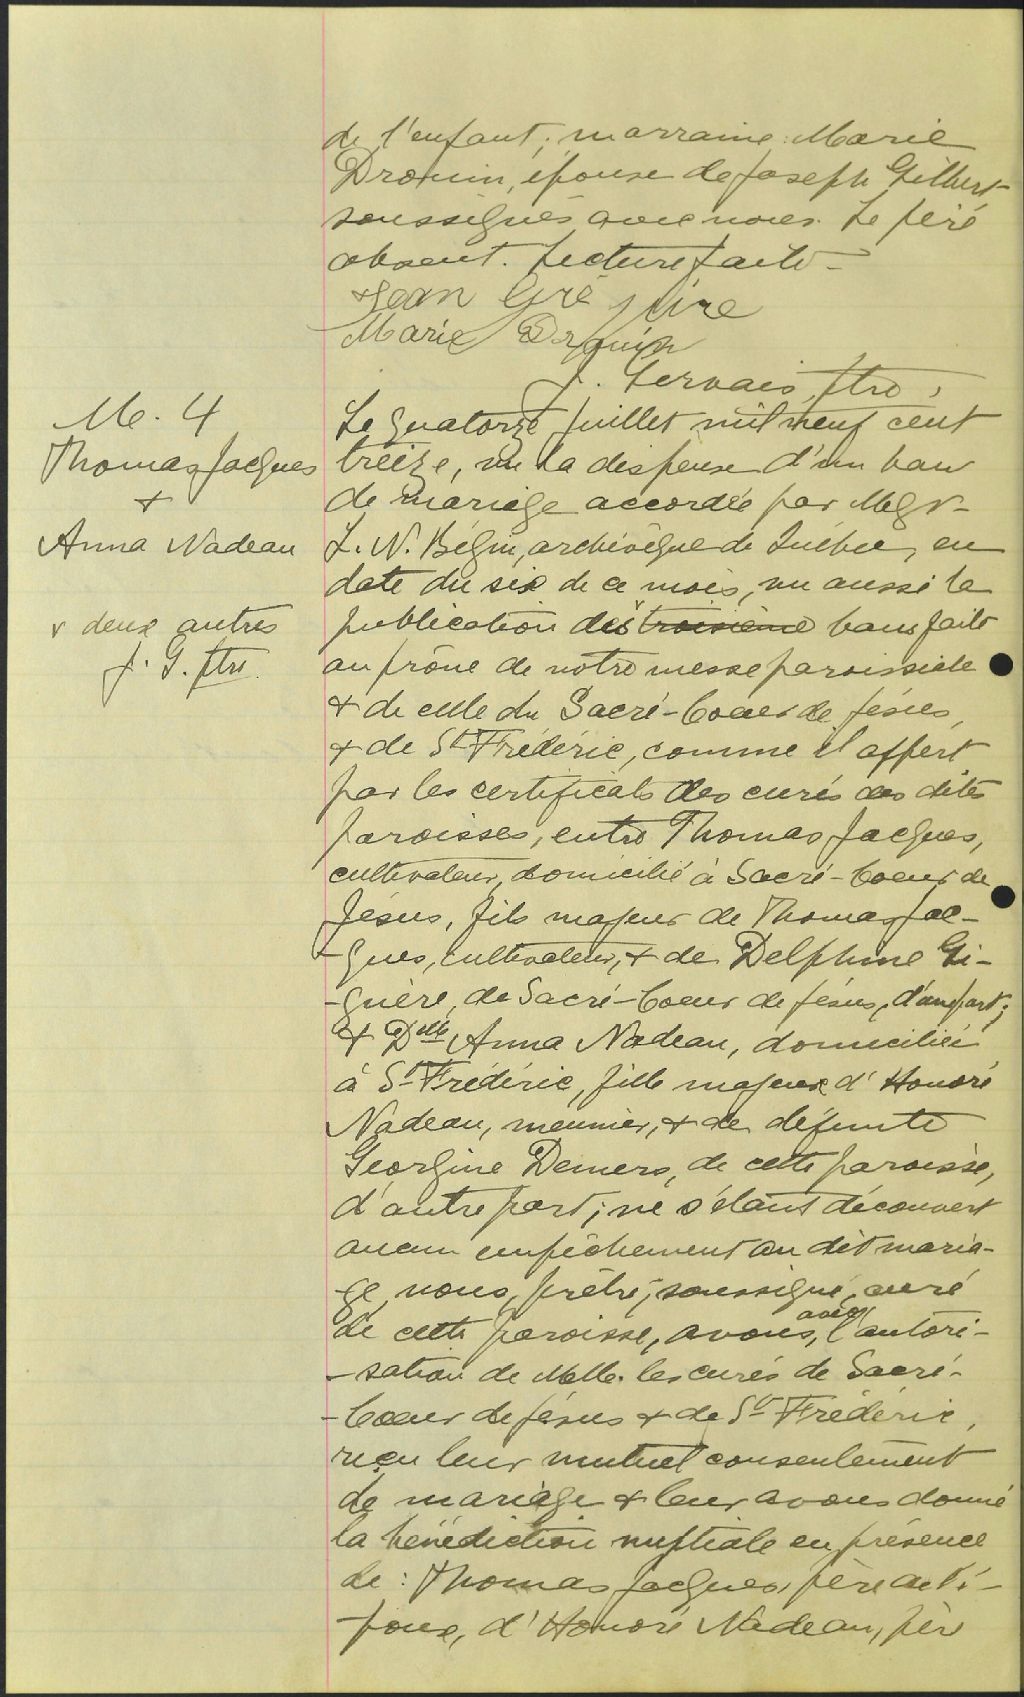 de l'enfant; marraine: Marie
Drouin, épouse de Joseph Gilbert
soussignés avec nous. Le père
absent. Lecture faite -
Jean Grégoire
Marie Drouin
J. Gervais, ptre,
M. 4
Thomas Jacques
+
Anna Nadeau
v deux autres
J. G. ptre
Le quatorze juillet mil neuf cent
treize, vu la dispense d'un ban
de mariage accordée par Mgr
L. N. Bégin, archévêque de Québec, en
date du six de ce mois, vu aussi la
publication des v troisième bans faite
au prône de notre messe paroissiale
+ de celle du Sacré-Coeur de Jésus,
+ de St Frédéric, comme il appert
par les certificats des curés des dites
paroisses, entre Thomas Jacques,
cultivateur, domicilié à Sacré-Coeur de
Jésus, fils majeur de Thomas Jac-
-ques, cultivateur, + de Delphine Gi-
-guère, de Sacré-Coeur de Jésus, d'une part;
+ Dlle Anna Nadeau, domiciliée
à St Frédéric, fille majeure d'Honoré
Nadeau, meunier, + de défunte
Georgine Demers, de cette paroisse,
d'autre part; ne s'étant découvert
aucun empêchement au dit maria-
-ge, nous, prêtre, soussigné, curé
de cette paroisse, avons, avec l'autori-
-sation de MM. les curés de Sacré-
-Coeur de Jésus + de St Frédéric,
reçu leur mutuel consentement
de mariage + leur avons donné
la bénédiction nuptiale en présence
de: Thomas Jacques, père de l'é-
-poux, d'Honoré Nadeau, père